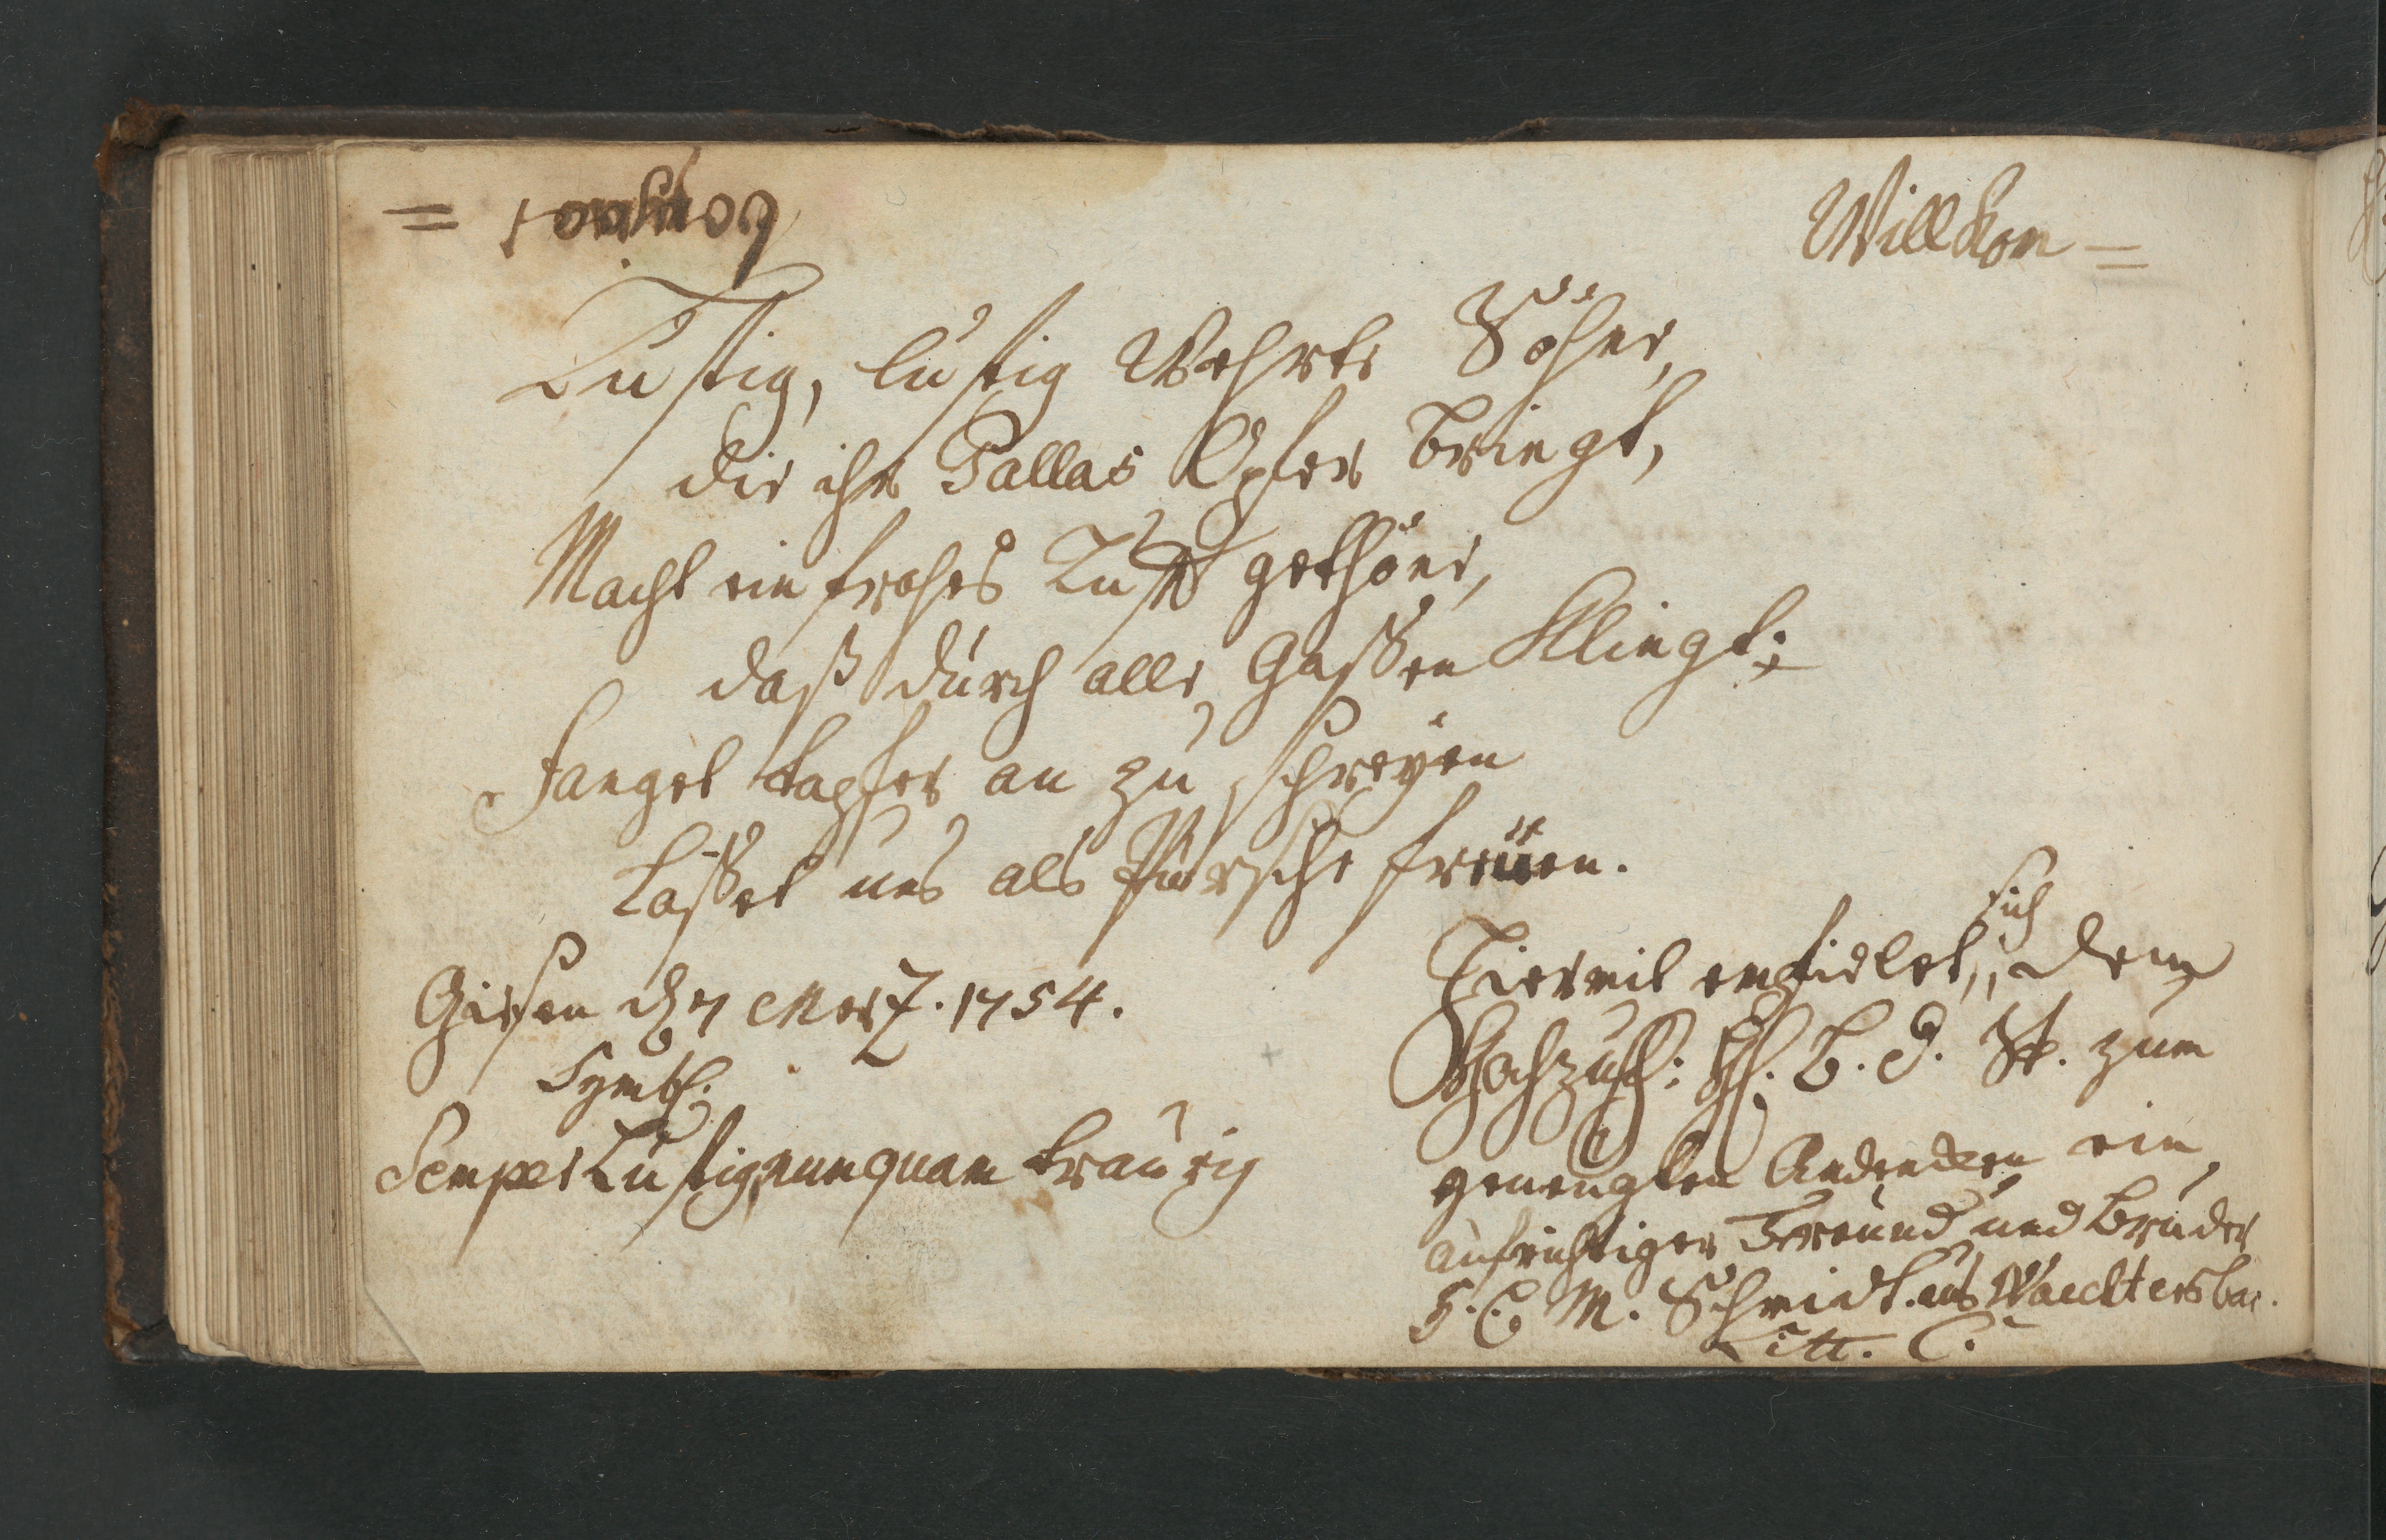 Willkom=
Lustig, lustig Wehrte Söhne,
die ihr Pallas Opfer bringt,
Macht ein frohes Lust gethöne,
daß durch alle Gaßen Klingt;
Fanget tapfer an zu schreyen
Laßet uns als Pursche freüen.
Giesen d 7 Merz. 1754.
Symb.
Semper Lustig, nunquam traurig
Hiermit empfielet, sich dem
Hochzuh: H. B. St. zum
geneugten Andencken ein
aufrichtiger Freund und Bruder
H. C. M. Schmidt. aus Waechtersbac.
Litt. C.